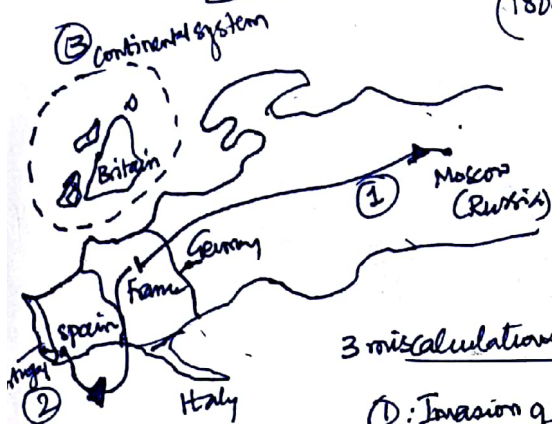 (180
③ continental system
Britain
①
Moscow
(Russia)
Germany
France
Spain
②
Italy
3 miscalculation
①: Invasion o